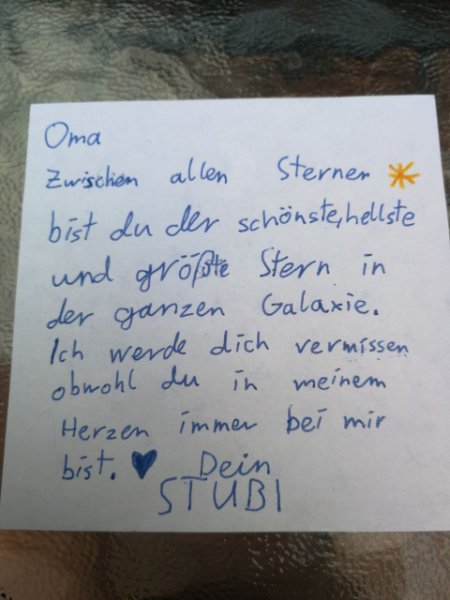 Oma
Zwischen allen Sternen
bist du der schönste, hellste
und größte Stern in
der ganzen Galaxie.
Ich werde dich vermissen
obwohl du in meinem
Herzen immer bei mir
bist. Dein
STUBI